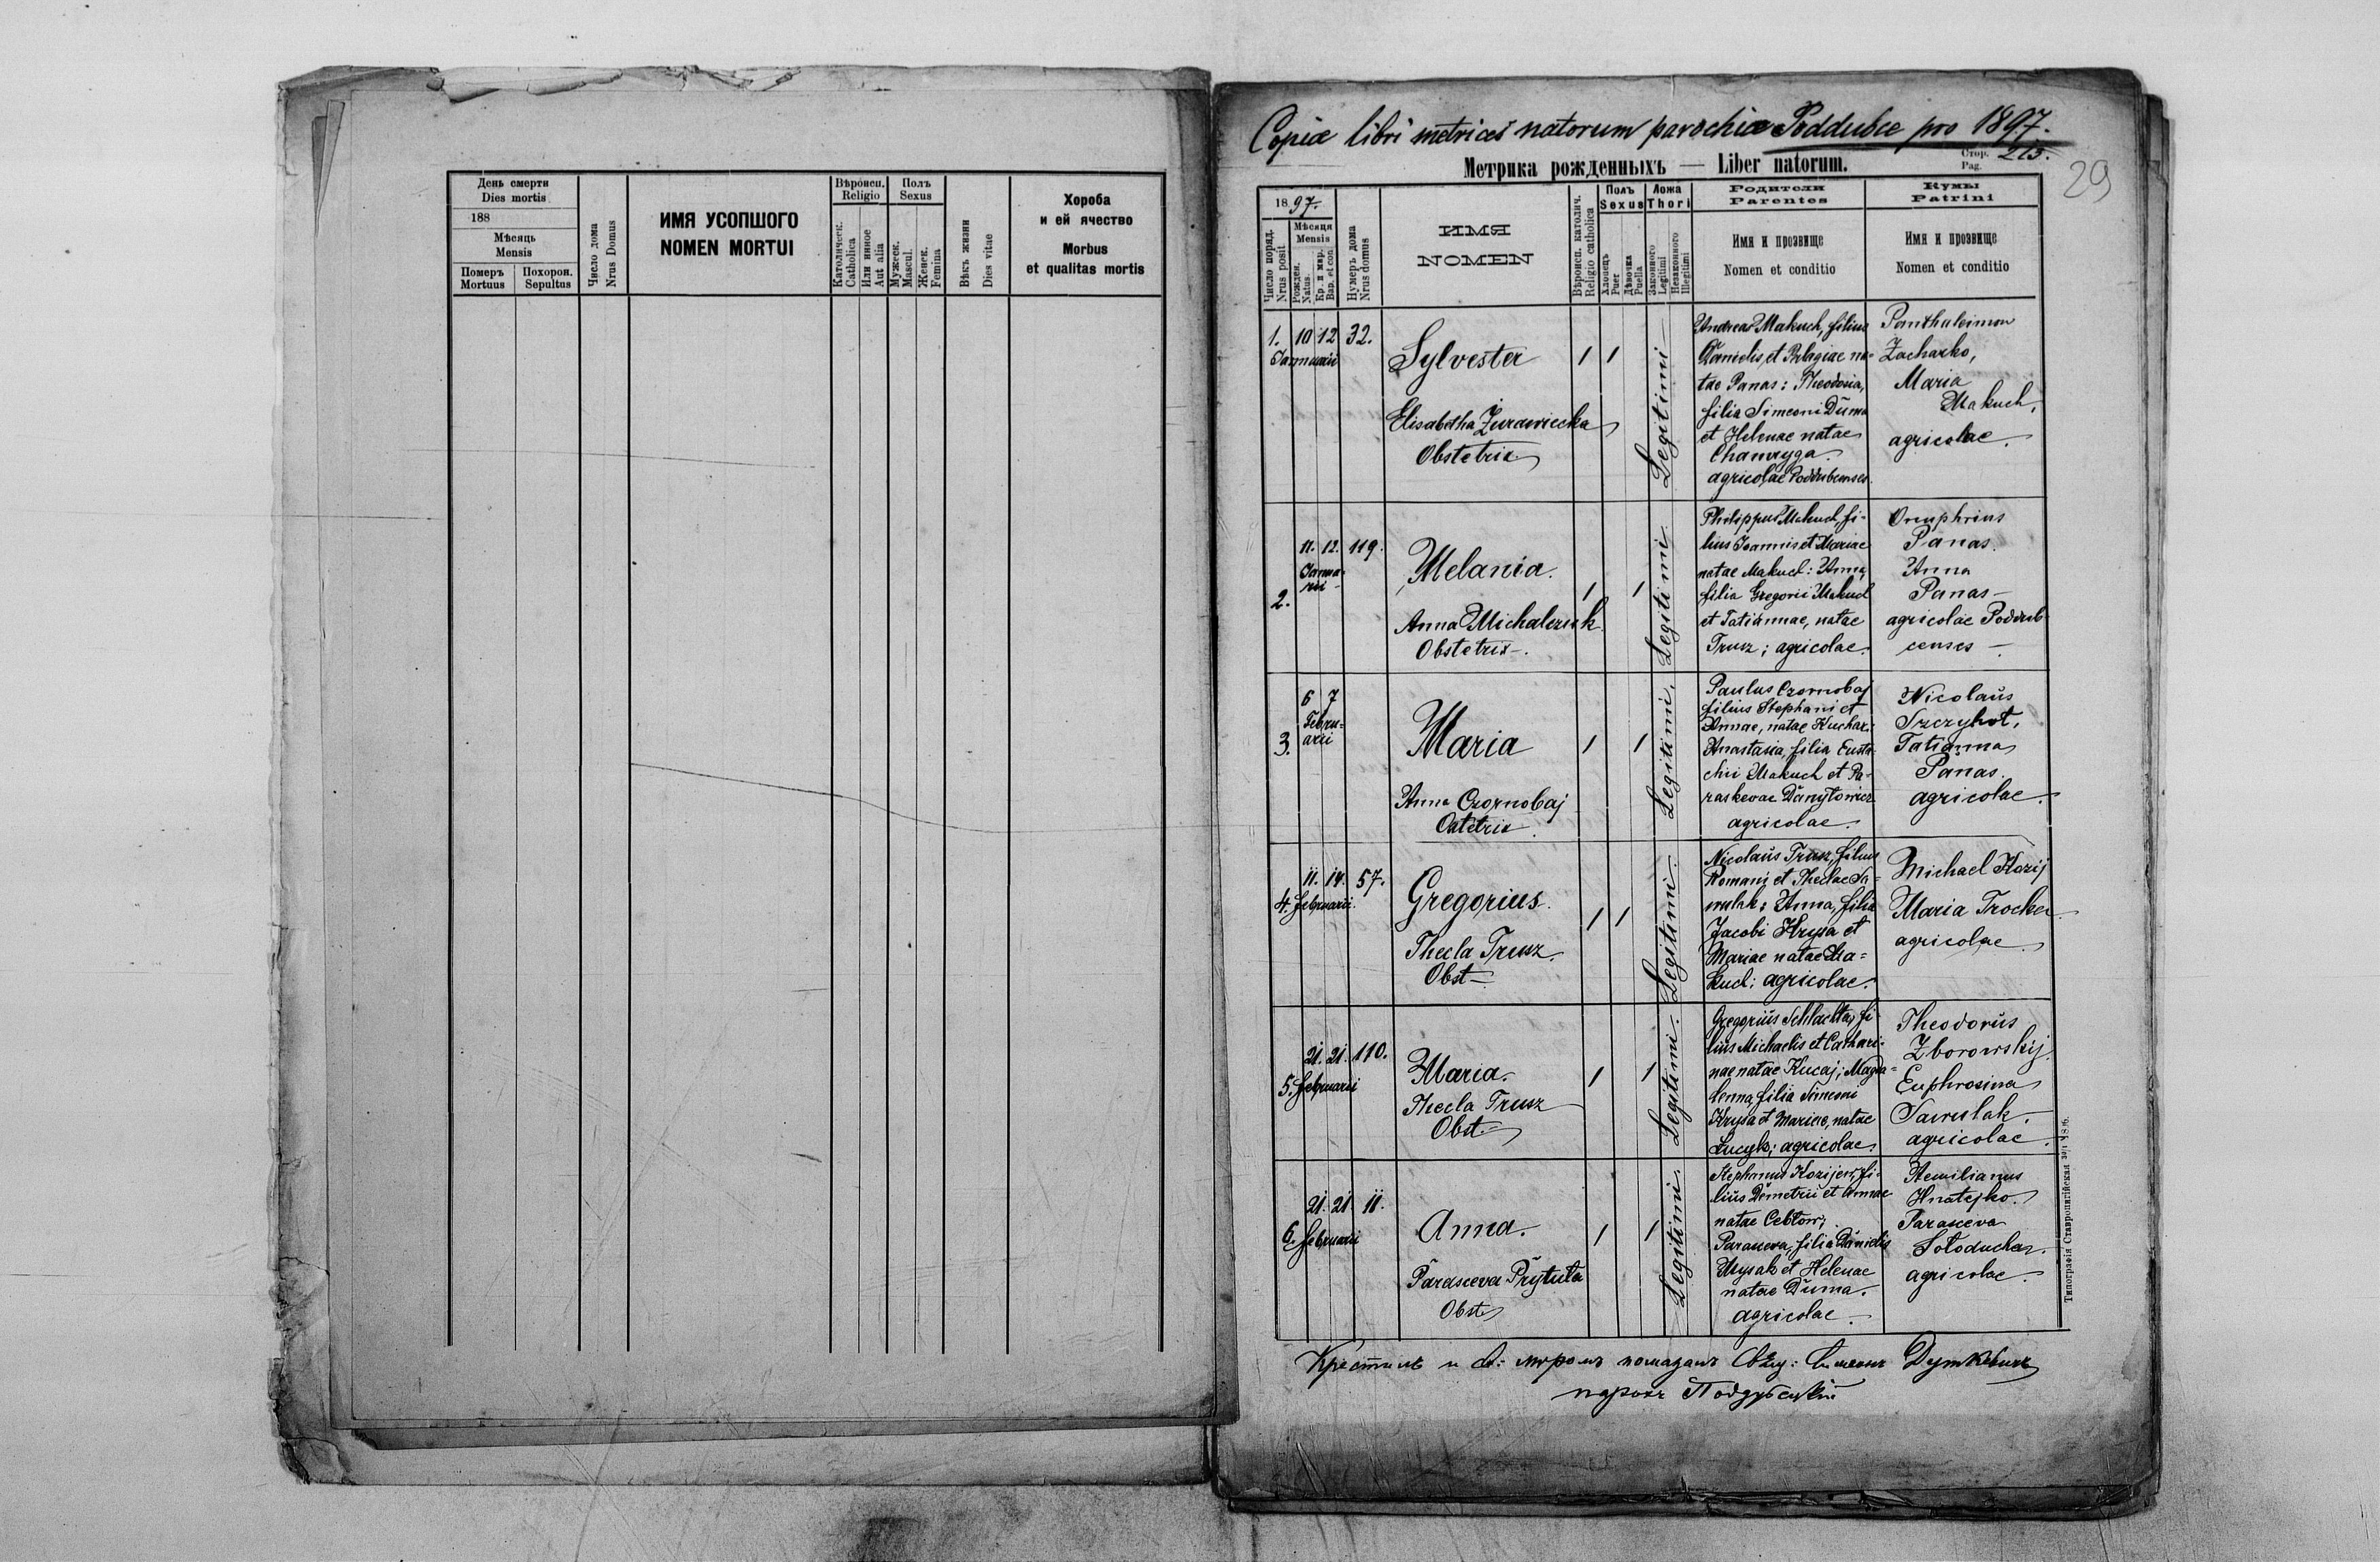 День смерти
Dies mortis
188
Мѣсяць
Mensis
Померъ
Mortuus
Похорон.
Sepultus
Число дома
Nrus Domus
ИМЯ УСОПШОГО
NOMEN MORTUI
Вѣроисп.
Religio
Католическ.
Catholica
Или инное
Aut alia
Полъ
Sexus
Мужеск.
Mascul.
Женск.
Femina
Вѣкъ жизни
Dies vitae
Хороба
и ей ячество
Morbus
et qualitas mortis
Copia libri metrices natorum parochiae Poddubce pro 1897.
Метрика рожденныхъ — Liber natorum.
Стор.
Pag.
215.
29
1897.
Число поряд.
Nrus posit
Мѣсяця
Mensis
Рожден.
Natus.
Кр. и мѵр.
Bap. et con.
Нумеръ дома
Nrus domus
ИМЯ
NOMEN
Вѣроисп. католич.
Religio catholica
Полъ
Sexus
Хлопець
Puer
Дѣвочка
Puella
Ложа
Thori
Законного
Legitimi
Незаконного
Illegitimi
Родители
Parentes
Имя и прозвище
Nomen et conditio
Кумы
Patrini
Имя и прозвище
Nomen et conditio
1. 10 12 32.
Januarii
Sylvester
Elisabetha Żurawiecka
Obstetrix
1 1
Legitimi
Andreas Makuch, filius
Danielis, et Pelagiae na-
tae Panas: Theodosia,
filia Simeoni Duma
et Helenae natae
Chamryga
agricolae Poddubcenses.
Panthaleimon
Zacharko,
Maria
Makuch,
agricolae.
2.
11. 12. 119.
Janua-
rii
Melania.
Anna Michalczuk
Obstetrix.
1 1
Legitimi.
Philippus Makuch, fi-
lius Joannis et Mariae
natae Makuch: Anna,
filia Gregorii Makuch
et Tatiannae, natae
Trusz; agricolae.
Onuphrius
Panas.
Anna
Panas
agricolae Poddub-
censes
3.
6 7
Febru-
arii
Maria
Anna Czornobaj
Obstetrix
1 1
Legitimi.
Paulus Czornobaj
filius Stephani et
Annae, natae Kuchar:
Anastasia, filia Eusta-
chii Makuch et Pa-
raskevae Danyłowicz
agricolae.
Nicolaus
Szczyhot.
Tatianna
Panas.
agricolae.
4.
11. 14. 57.
februarii.
Gregorius.
Thecla Trusz.
Obst
1 1
Legitimi.
Nicolaus Trusz, filius
Romani et Theclae Sa-
wulak: Anna, filia
Jacobi Hrysa et
Mariae natae Ma-
kuch; agricolae.
Michael Kozij
Maria Trocker
agricolae
5.
21. 21. 110.
februarii
Maria.
Thecla Trusz
Obst.
1 1
Legitimi.
Gregorius Schlachta, fi-
lius Michaelis et Cathari-
nae natae Kucaj; Magda-
lenna filia Simeoni
Krysa et Mariae, natae
Lucyk; agricolae.
Theodorus
Zborowskij.
Euphrosina
Sawulak.
agricolae.
6.
21. 21. 11.
februarii
Anna.
Parasceva Prytuła
Obst.
1 1
Legitimi.
Stephanus Kozijew, fi-
lius Demetrii et Annae
natae Cebłow;
Parasceva, filia Danielis
Mysak et Helenae
natae Duma.
agricolae.
Aemilianus
Hnatejko.
Parasceva
Sołoducha.
agricolae.
Крестилъ и св: мѵромъ помазалъ Свящ: Симеонъ Дуткевичъ
парохъ Поддубецкій